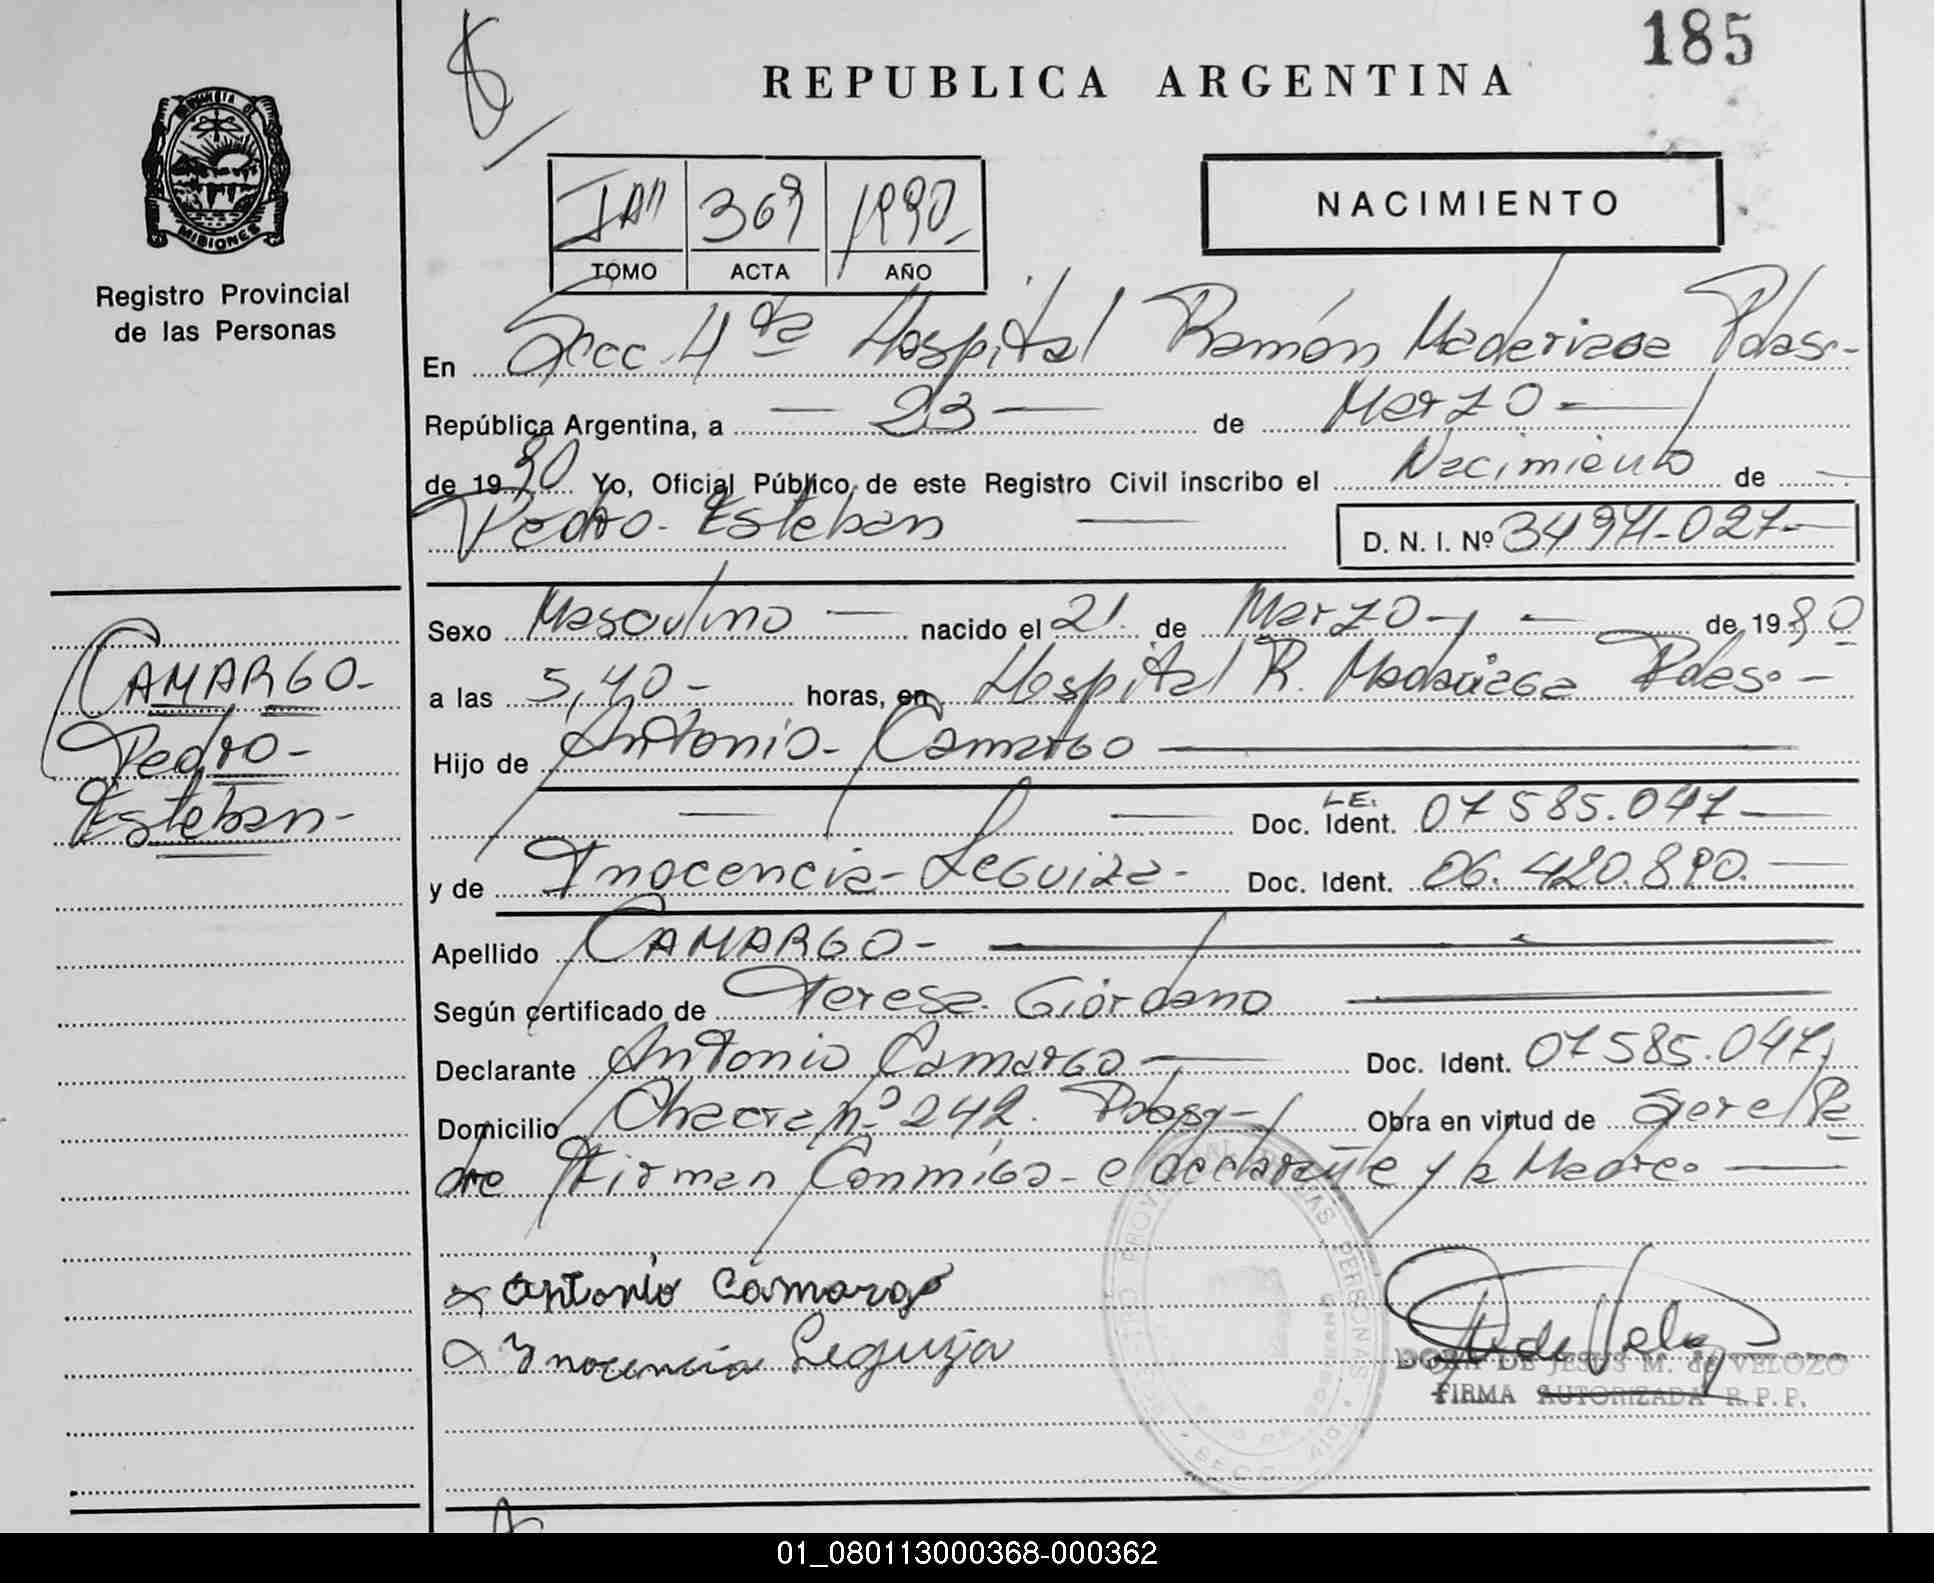 185
REPUBLICA ARGENTINA
NACIMIENTO
MISIONES
Registro Provincial
de las Personas
I "A" 369 1990
TOMO ACTA AÑO
En Secc 4ta Hospital Ramón Maderiaga Pdas.-
República Argentina, a — 23 — de Marzo —
de 1990 Yo, Oficial Público de este Registro Civil inscribo el Nacimiento de
Pedro Esteban — D. N. I. Nº 34974-027-
Sexo Masculino — nacido el 21. de Marzo - — de 1990
a las 5,40- horas, en Hospital R. Madariaga Pdas. -
Hijo de Antonio Camargo
— — L.E. Doc. Ident. 07585.047 —
y de Inocencia Leguiza - Doc. Ident. 06.420.890. —
Apellido CAMARGO -
Según certificado de Teresa Giordano
Declarante Antonio Camargo — Doc. Ident. 07585.047,
Domicilio Chacra nº 242. Pdas, - Obra en virtud de Ser el Pa
dre Firman Conmigo - el declarante y la Madre. —
CAMARGO -
Pedro -
Esteban -
x Antonio Camargo
x Ynocencia Leguiza
DE JESUS M. de VELOZO
FIRMA AUTORIZADA R.P.P.
01_080113000368-000362